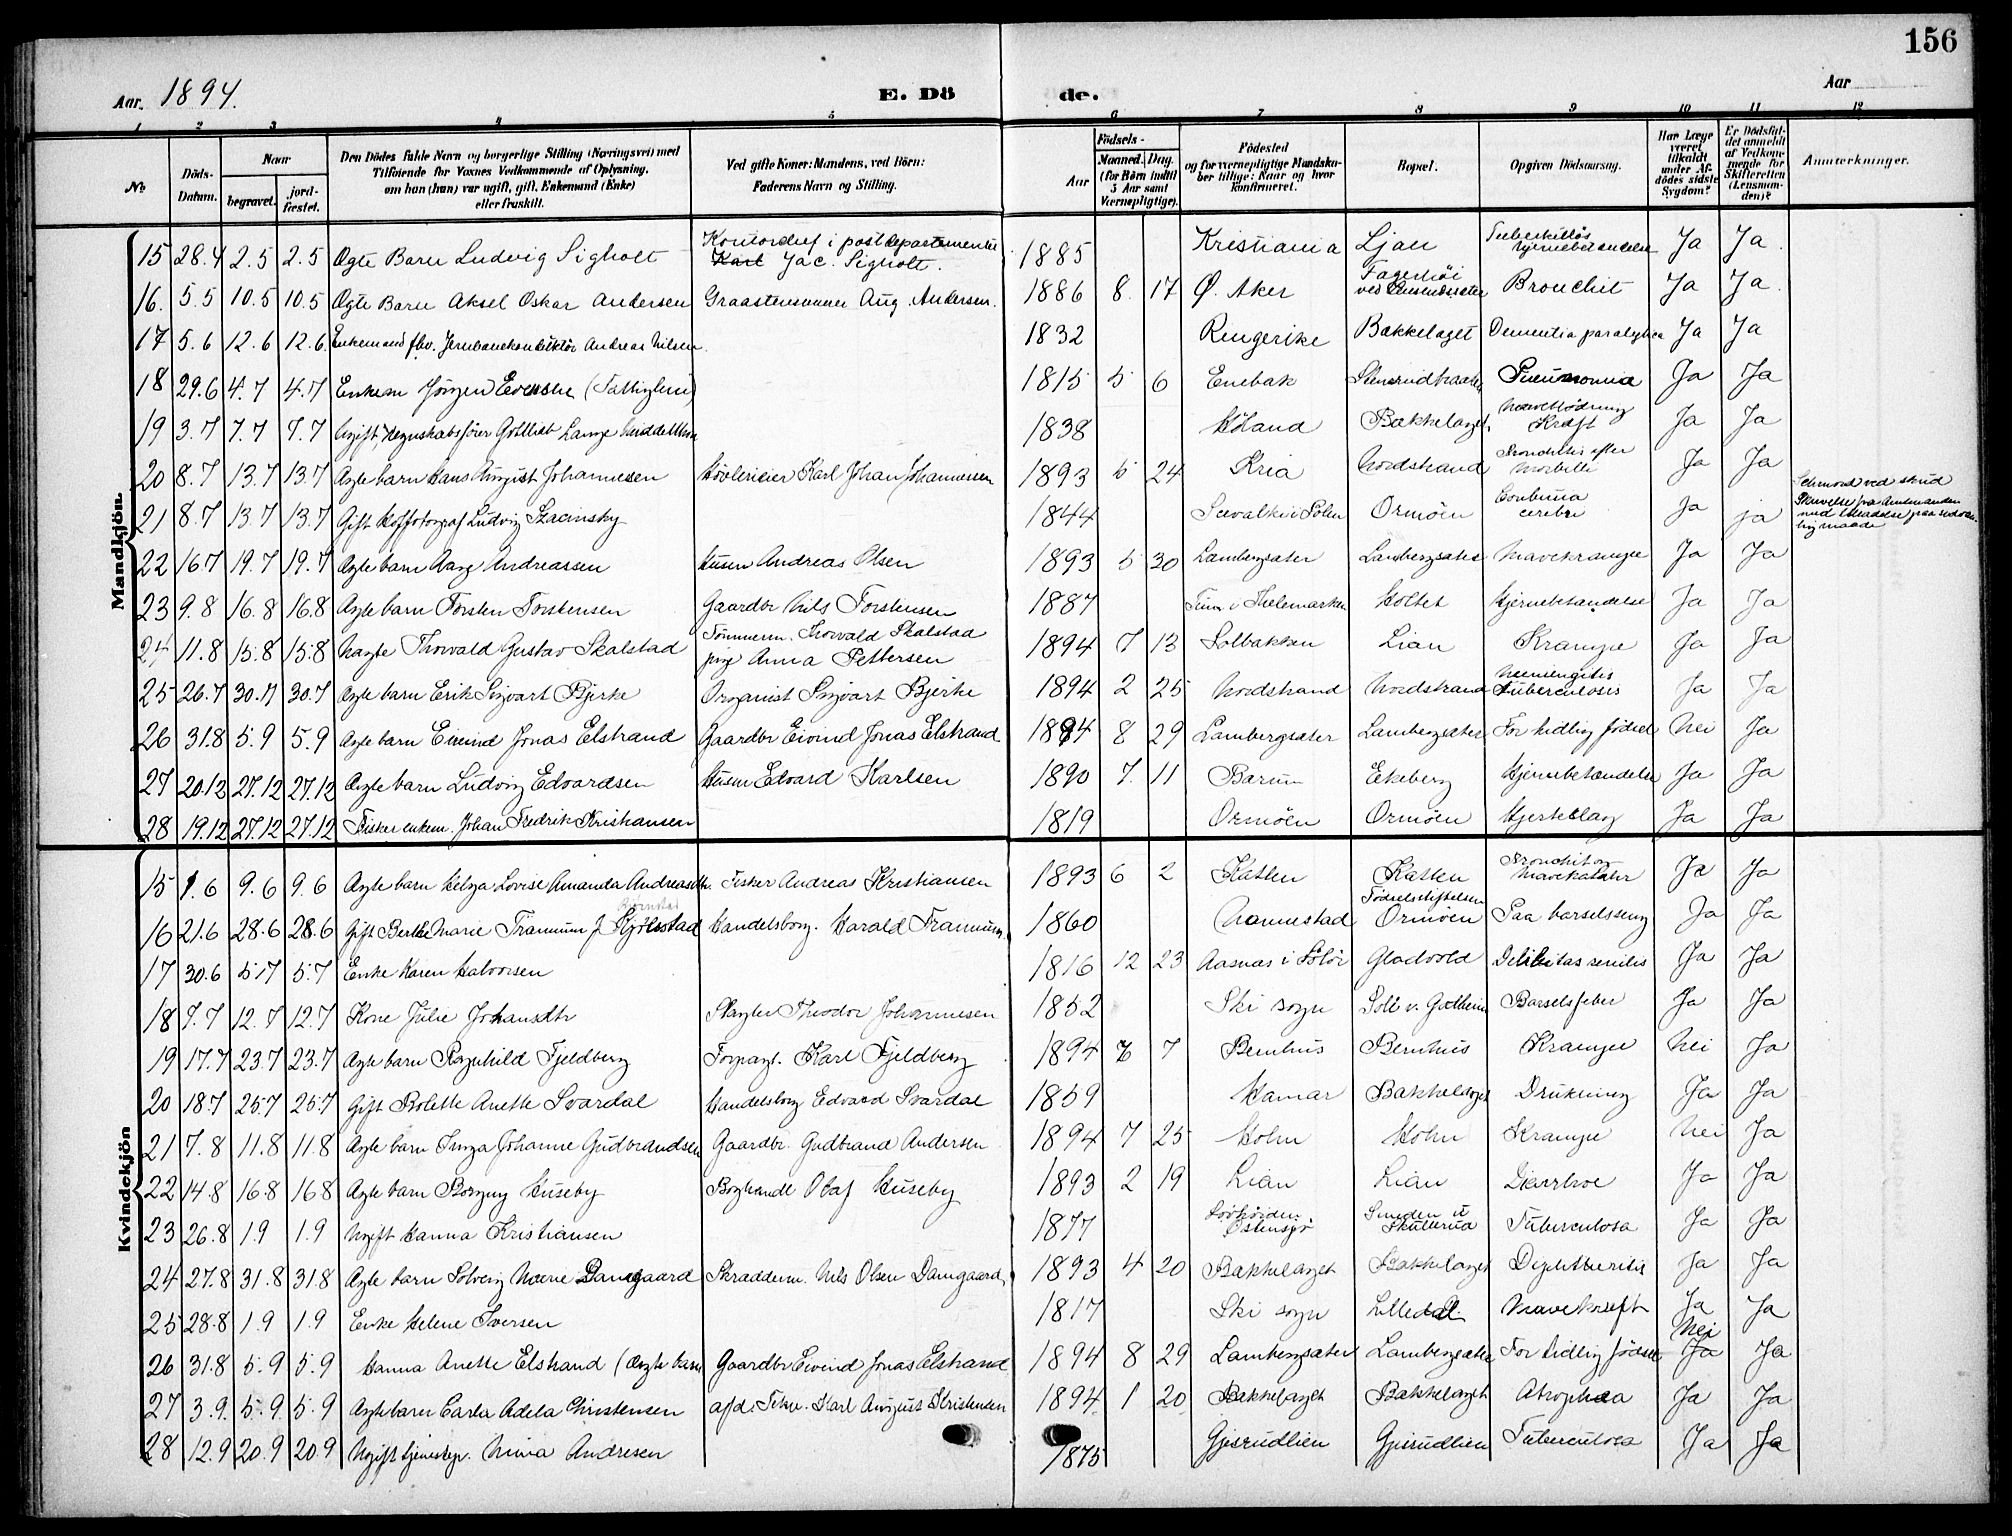 156
Aar. 1894. E. Dö de. Aar
1 2 3 4 5 6 7 8 9 10 11 12
No
Döds-Datum.
Naar
begravet.
jord-fæstet.
Den Dödes fulde Navn og borgerlige Stilling (Næringsvei) med
Tilföiende for Voxnes Vedkommende af Oplysning,
om han (hun) var ugift, gift, Enkemand (Enke)
eller fraskilt.
Ved gifte Koner: Mandens, ved Börn:
Faderens Navn og Stilling.
Födsels-
Aar
Maaned. Dag.
(for Börn indtil
5 Aar samt
Værnepligtige).
Födested
og for værnepligtige Mandska-
ber tillige: Naar og hvor
konfirmeret.
Bopæl.
Opgiven Dödsaarsag.
Har Læge
været
tilkaldt
under Af-
dödes sidste
Sygdom?
Er Dödsfal-
det anmeldt
af Vedkom-
mende for
Skifteretten
(Lensman-
den)?
Anmerkninger.
Mandkjön
15 28.4 2.5 2.5 Ægte Barn Ludvig Sigholt Kontorchef i postdepartementet Karl Jac. Sigholt. 1885 Kristiania Ljan Tuberkulös hjernebetændelse Ja Ja.
16. 5.5 10.5 10.5 Ægte Barn Aksel Oskar Andersen Graastensminer Aug. Andersen. 1886 8. 17 Ø. Aker Fagerhöi ved Bronchit Ja Ja.
17 5.6 12.6 12.6. Enkemand fhv. Jernbanekonduktör Andreas Nilsen. 1832 Ringerike Bækkelaget Dementia paralytica Ja Ja
18 29.6 4.7 4.7 Enkem Jörgen Evensen (Fattiglem) 1815 5 6 Enebak Stensrudbraaten Pneumonia Ja Ja
19 3.7 7.7 7.7 Ugift, Regnskabsförer Gottlieb Lange 1838 Höland Bækkelaget, Maveblödning Kræft Ja Ja
20 8.7 13.7 13.7 Ægte barn Hans August Johannesen Hövlerieier Karl Johan Johannesen 1893 5 24 Kria Nordstrand Bronchitis efter Morbilli Ja Ja
21 8.7 13.7 13.7 Gift Hoffotograf Ludvig Szacinsky 1844 Suvalki i Polen Ormöen cerebri Ja ja Selvmord ved skud Skrivelse fra Amtmanden med tilladelse paa sedvan- lig maade
22 16.7 19.7 19.7 Ægte barn Aage Andreassen Husm Andreas Olsen 1893 5 30 Lambergsæter Lambergsæter Mavekrampe Ja Ja
23 9.8 16.8 16.8 Ægte barn Torsten Torstensen Gaardbr Nils Torstensen 1887 Tinn i Thelemarken Holtet Hjernebetændelse Ja Ja
24 11.8 15.8 15.8 Uægte Thorvald Gustav Skalstad Tömmerm. Thorvald Skalstad pige Anna Pettersen 1894 7 13 Solbakken Lian Krampe Ja Ja
25 26.7 30.7 30.7 Ægte barn Erik Sigvart Bjerke Organist Sigvart Bjerke 1894 2 25 Nordstrand Nordstrand Meningitis tuberculosis Ja Ja
26 31.8 5.9 5.9 Ægte barn Eivind Jonas Elstrand Gaardbr Eivind Jonas Elstrand 1894 8 29 Lambergsæter Lambergsæter For tidlig födsel Nei Ja
27 20.12 27.12 27.12 Ægte barn Ludvig Edvardsen Husm Edvard Karlsen 1890 7. 11 Bærum Ekeberg Hjernebetændelse Ja Ja
28 19.12 27.12 27.12 Fisker enkem. Johan Fredrik Kristiansen 1819 Ormöen Ormöen Hjerteslag Ja Ja
Kvindekjön
15 1.6 9.6 9.6 Ægte barn Helga Lovise Amanda Andreasdtr. Fisker Andreas Kristiansen 1893 6 2 Katten Katten Bronchit og Mavekatarr Ja Ja
16 21.6 28.6 28.6 Gift Berthe Marie Tranum f. Handelsborg. Harald Tranum. 1860 Födselsstiftelsen Ormöen Paa barselsseng Ja Ja
17 30.6 5.7 5.7 Enke Karen Halvorsen 1816 12 23 Aasnæs i Solör Gladvold Debilitas senilis Ja Ja
18 7.7 12.7 12.7 Kone Julie Johansdtr Slagter Theodor Johannesen 1852 Ski sogn Barselsfeber Ja Ja
19 17.7 23.7 23.7 Ægte barn Ragnhild Fjeldberg Forpagt. Karl Fjeldberg 1894 6 7 Bernhus Bernhus Krampe Nei Ja
20 18.7 25.7 25.7 Gift Bolette Anette Svardal Handelsborg Edvard Svardal 1859 Hamar Bækkelaget Drukning Ja Ja
21 7.8 11.8 11.8 Ægte barn Inga Johanne Gudbrandsen Gaardbr. Gudbrand Andersen 1894 7 25 Holm Holm Krampe Nei Ja
22 14.8 16.8 16.8 Ægte barn Borgny Huseby Boghandl Olaf Huseby 1893 2 19 Lian Lian Diarrhoe Ja Ja
23 26.8 1.9 1.9 Ugift Hanna Kristiansen 1877 Östensjö Smeden u Skullerud Tuberculosa Ja Ja
24 27.8 31.8 31.8 Ægte barn Solveig Marie Damgaard Skrædderm. Nils Olsen Damgaard, 1893 4 20 Bækkelaget Bækkelaget Diphtheritis Ja Ja
25 28.8 1.9 1.9 Enke Helene Iversen 1817 Ski sogn Lilledal. Mavekræft Ja Ja
26 31.8 5.9 5.9 Hanna Anette Elstrand (Ægte barn Gaardbr Eivind Jonas Elstrand 1894 8 29 Lambergsæter Lambergsæter For tidlig födsel Nei Ja Ja
27 3.9. 5.9. 5.9 Ægte barn Carla Adela Christensen afd. Karl August Kristensen 1894. 1 20 Bækkelaget Bækkelaget Atrophia Ja Ja
28 12.9 20.9 20.9 Ugift tjenestep. Mina Andresen 1875 Gjersrudlien Gjersrudlien Tuberculosa Ja Ja